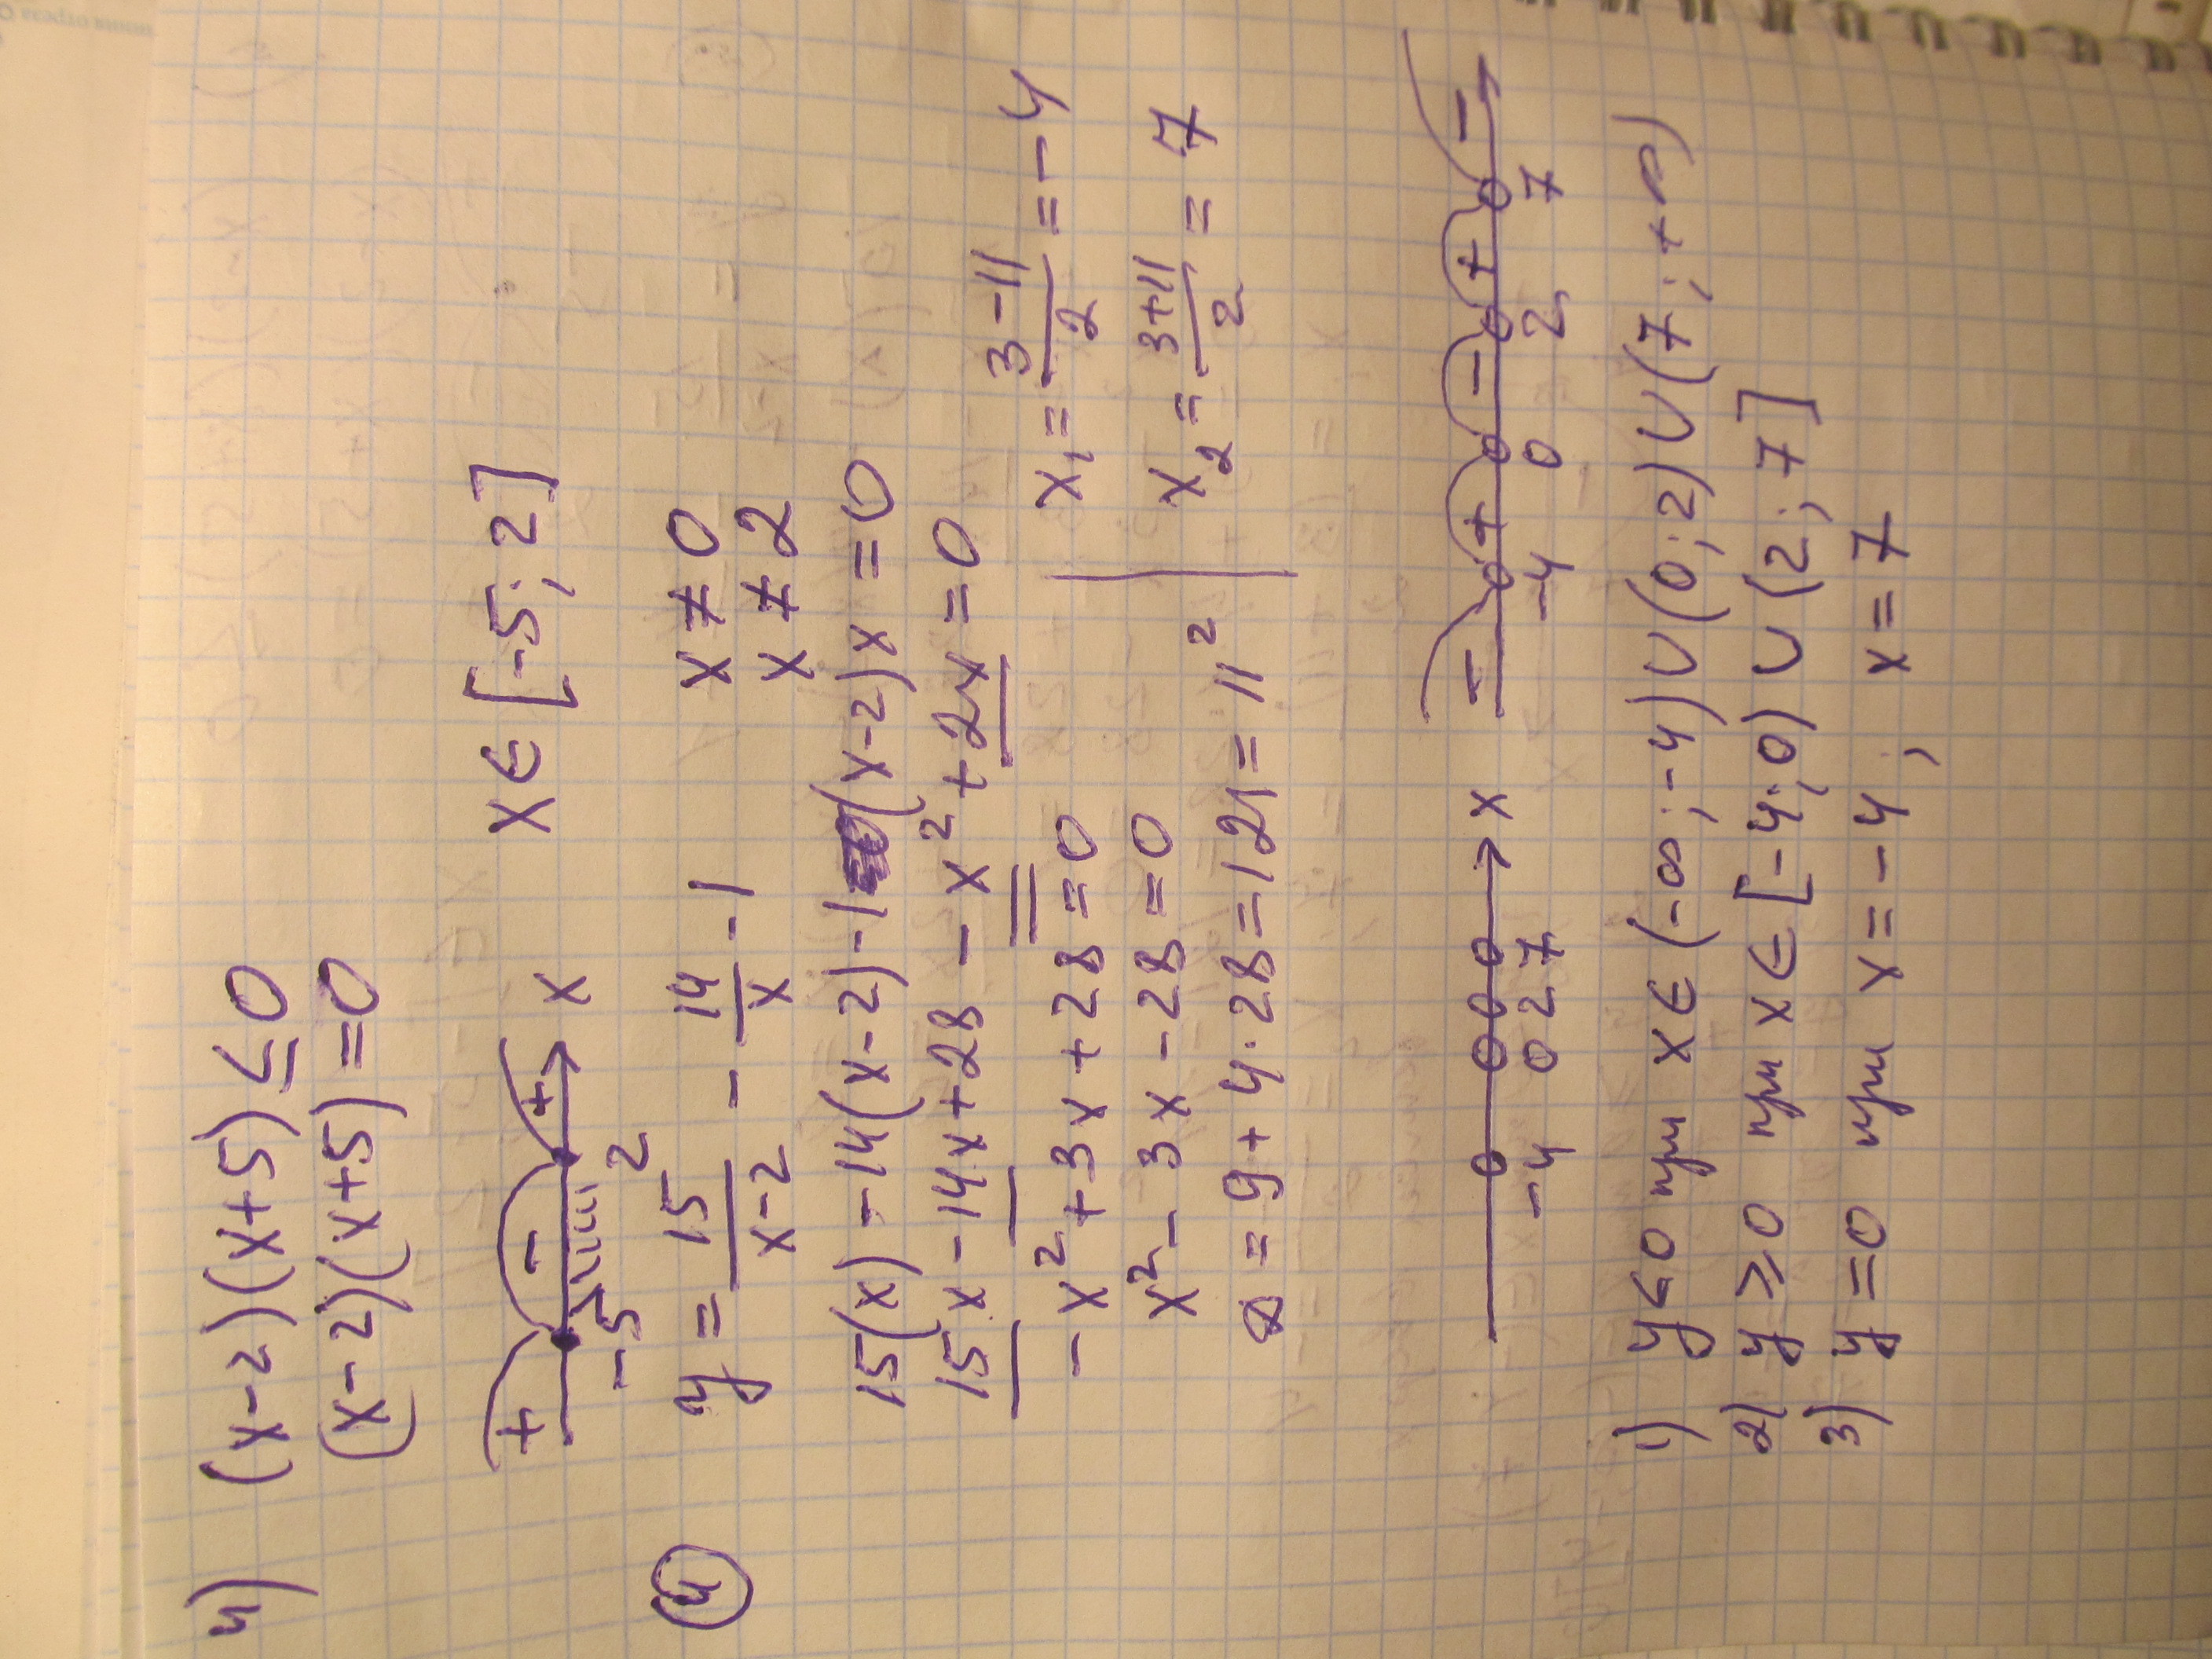 4) (x-2)(x+5) ≤ 0
(x-2)(x+5) = 0
+ - + x
-5 2
x ∈ [-5; 2]
④ y = 15/(x-2) - 14/x - 1 x ≠ 0
x ≠ 2
15(x) - 14(x-2) - 1(x-2)x = 0
15x - 14x + 28 - x² + 2x = 0
-x² + 3x + 28 = 0
x² - 3x - 28 = 0
D = 9 + 4·28 = 121 = 11²
x₁ = (3-11)/2 = -4
x₂ = (3+11)/2 = 7
-4 0 2 7 x
- + - + -
-4 0 2 7
1) y < 0 при x ∈ (-∞; -4) ∪ (0; 2) ∪ (7; +∞)
2) y ≥ 0 при x ∈ [-4; 0) ∪ (2; 7]
3) y = 0 при x = -4; x = 7